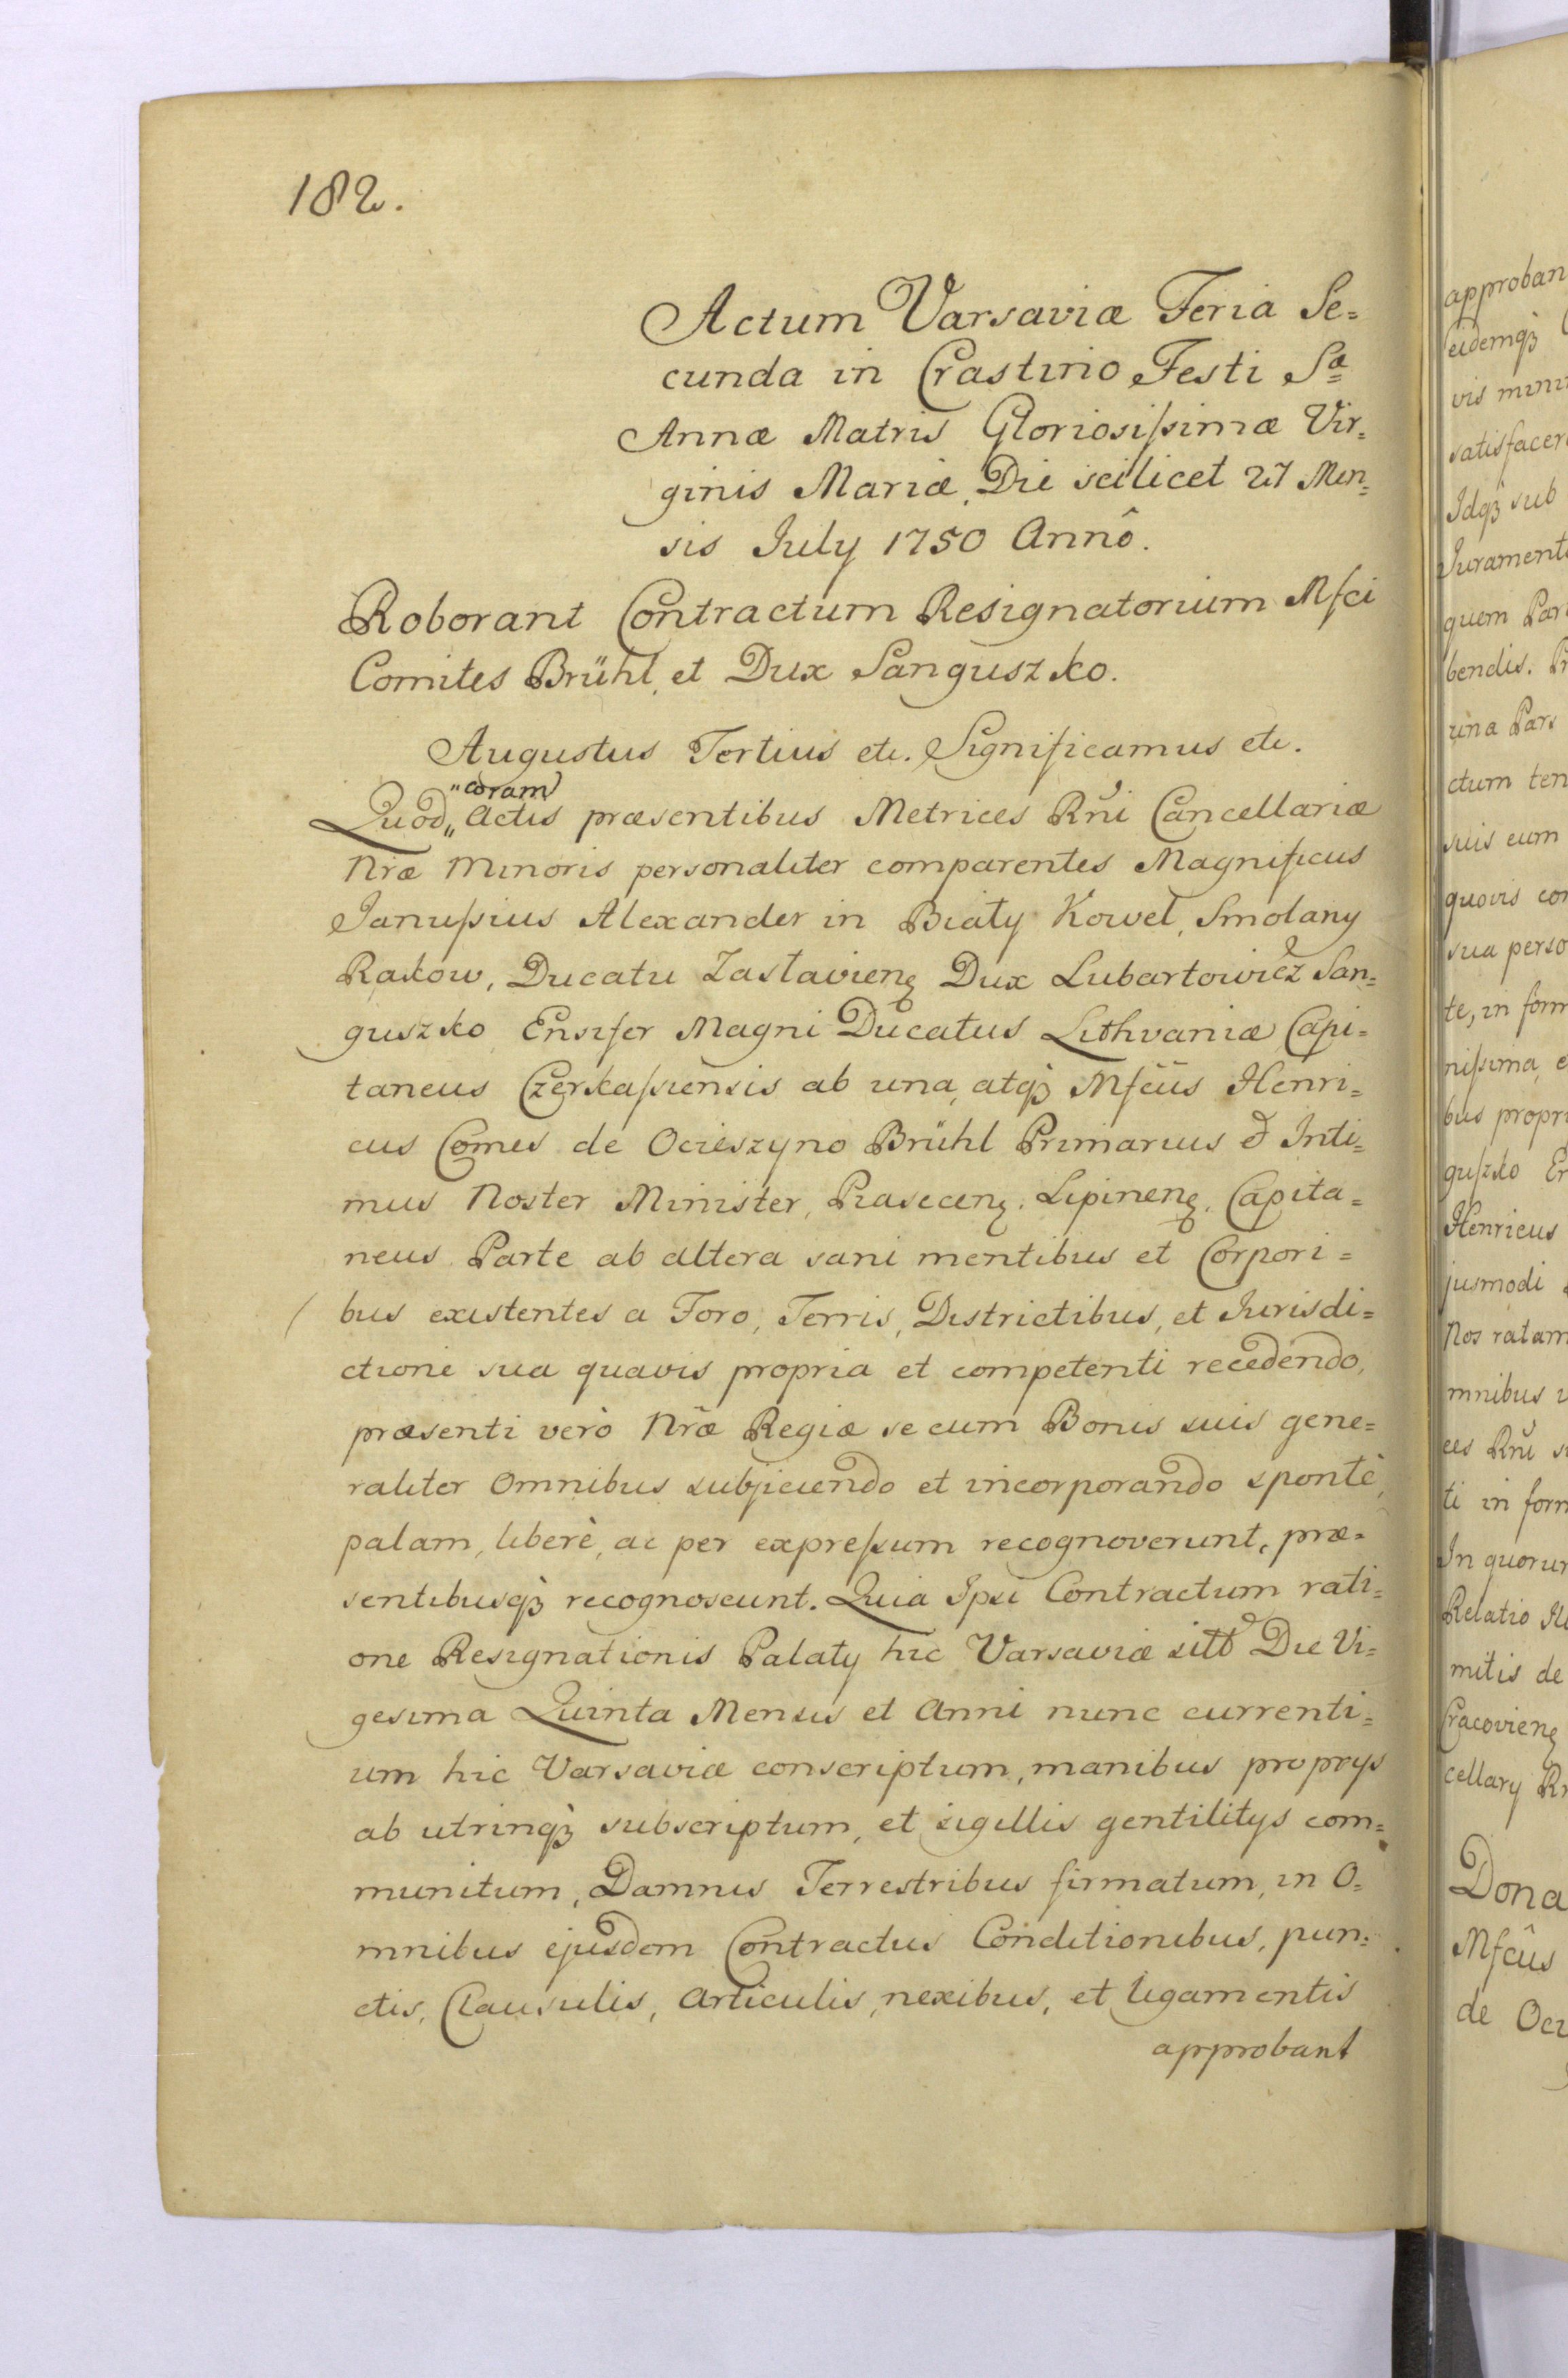 182.
Actum Varsaviæ Feria Se=
cunda in Crastino Festi Sæ
Annæ Matris Gloriosissimæ Vir=
ginis Mariæ, Die scilicet 27 Men=
sis July 1750 Annô.
Roborant Contractum Resignatorium Mfci
Comites Brühl, et Dux Sanguszko.
Augustus Tertius etc. Significamus etc.
"coram
Quod„ Actis præsentibus Metrices Rñi Cancellariæ
Nræ Minoris personaliter comparentes Magnificus
Janussius Alexander in Biały Kowel, Smolany
Rakow, Ducatu Zaslavienę Dux Lubartowicz San=
guszko Ensifer Magni Ducatus Lithvaniæ Capi=
taneus Czerkassiensis ab una, atqȝ Mfcus Henri=
cus Comes de Ocieszyno Brühl Primarius & Inti=
mus Noster Minister, Piasecenę. Lipinenę. Capita=
neus Parte ab altera sani mentibus et Corpori=
bus existentes a Foro, Terris, Districtibus, et Jurisdi=
ctione sua quavis propria et competenti recedendo,
præsenti verò Nræ Regiæ se cum Bonis suis gene=
raliter Omnibus subjiciendo et incorporando spontè,
palam, liberè, ac per expressum recognoverunt, præ=
sentibusqȝ recognoscunt. Quia Ipsi Contractum rati=
one Resignationis Palaty hic Varsaviæ sitt Die Vi=
gesima Quinta Mensis et Anni nunc currenti=
um hic Varsaviæ conscriptum, manibus proprys
ab utrinqȝ subscriptum, et sigillis gentilitys com=
munitum, Damnis Terrestribus firmatum, in O=
mnibus ejusdem Contractus Conditionibus, pun=
ctis, Clausulis, Articulis, nexibus, et ligamentis
approbant
approban
eidemqȝ
vis mini
satisfacer
Idqȝ sub
Jurament
quem Par
bendis.
una Pars
ctum ten
suis eum
quovis con
sua perso
te, in form
nissima, e
bus propri
guszko En
Henricus
jusmodi
Nos ratam
mnibus
ces Rñi
ti in form
In quorum
Relatio
mitis de
Cracovienę
cellary
Dona
Mfcûs
de Oci